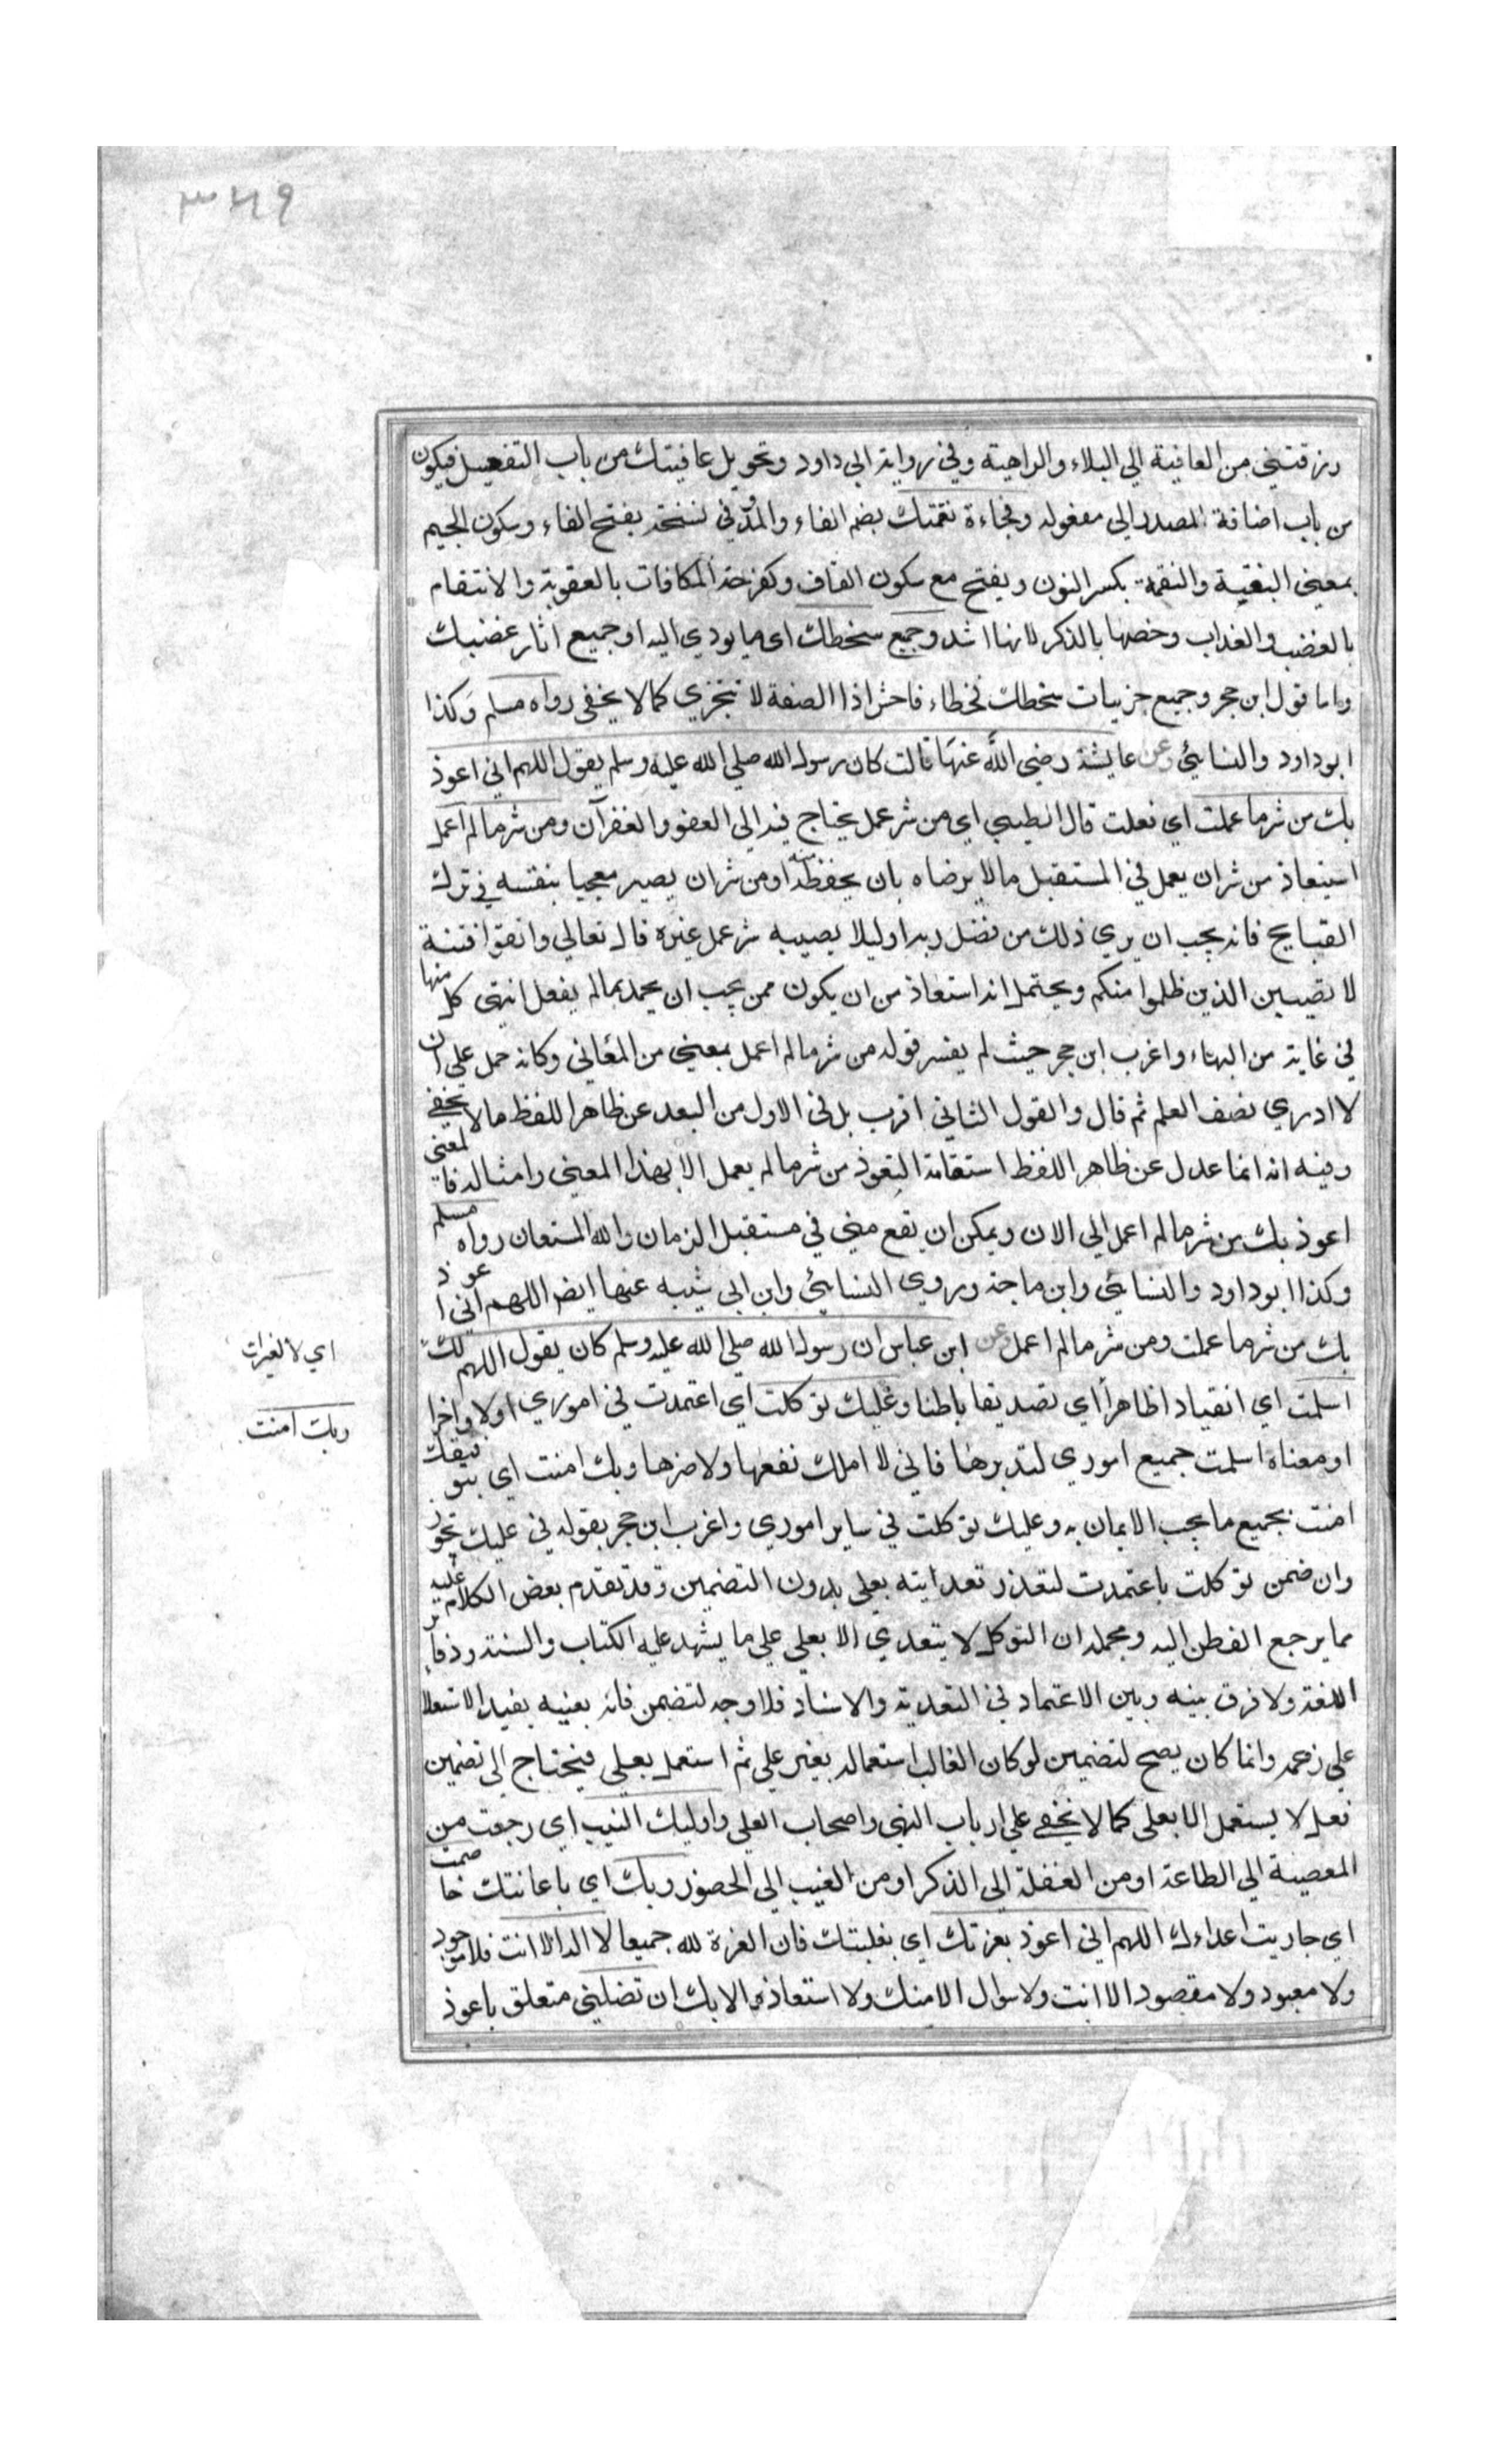 ٣٤٩
رزقتني من العافية الي البلاء والراهية وفي رواية ابي داود وتحويل عافيتك من باب التفعيل فيكون
من باب اضافة المصدر الي مفعوله وفجاءة نقمتك بضم الفاء والمد وفي نسخة بفتح الفاء وسكون الجيم
بمعني البغتة والنقمة بكسر النون ويفتح مع سكون القاف وكفرحة المكافات بالعقوبة والانتقام
بالغضب والعذاب وخصها بالذكر لانها اشد وجميع سخطك اي ما يودي اليه او جميع اثار غضبك
واما قول ابن حجر وجميع جزييات سخطك فخطاء فاحش اذ الصفة لا تتجزي كما لا يخفي رواه مسلم وكذا
ابوداود والنسائي وعن عايشة رضي الله عنها قالت كان رسول الله صلي الله عليه وسلم يقول اللهم اني اعوذ
بك من شر ما عملت اي فعلت قال الطيبي اي من شر عمل يحتاج فيه الي العفو والغفران ومن شر ما لم اعمل
استعاذ من شر ان يعمل في المستقبل ما لا يرضاه بان يحفظه منه او من شر ان يصير معجبا بنفسه في ترك
القبايح فانه يجب ان يري ذلك من فضل ربه او ليلا يصيبه شر عمل غيره قال تعالي واتقوا فتنة
لا تصيبن الذين ظلموا منكم ويحتمل انه استعاذ من ان يكون ممن يحب ان يحمد بما لم يفعل انتهي كل منها
في غاية من البهاء واغرب ابن حجر حيث لم يفسر قوله من شر ما لم اعمل بمعني من المعاني وكانه حمل علي ان
لا ادري نصف العلم ثم قال والقول الثاني اقرب بل في الاول من البعد عن ظاهر اللفظ ما لا يخفي
وفيه انه انما عدل عن ظاهر اللفظ استقامة التعوذ من شر ما لم يعمل الا بهذا المعني وامثاله فان المعني
اعوذ بك من شر ما لم اعمل الي الان ويمكن ان يقع مني في مستقبل الزمان والله المستعان رواه مسلم
وكذا ابوداود والنسائي وابن ماجة وروي النسائي وابن ابي شيبه عنها ايضا اللهم اني اعوذ
بك من شر ما عملت ومن شر ما لم اعمل وعن ابن عباس ان رسول الله صلي الله عليه وسلم كان يقول اللهم لك
اسلمت اي انقيادا ظاهرا اي تصديقا باطنا وعليك توكلت اي اعتمدت في اموري اولا واخرا
او معناه اسلمت جميع اموري لتدبرها فاني لا املك نفعها ولا ضرها وبك امنت اي بتوفيقك
امنت بجميع ما يجب الايمان به وعليك توكلت في ساير اموري واغرب ابن حجر بقوله في عليك تجوز
وان ضمن توكلت باعتمدت لتعذر تعدايته بعلي بدون التضمين وقد تقدم بعض الكلام عليه
مما يرجع الفطن اليه ومجمله ان التوكل لا يتعدي الا بعلي علي ما يشهد عليه الكتاب والسنة
اللغة ولا فرق بينه وبين الاعتماد في التعدية والاسناد فلا وجه لتضمن فانه بعينه يفيد الاستعلا
علي زعمه وانما كان يصح لتضمين لو كان الغالب استعماله بغير علي ثم استعمل بعلي فيحتاج الي تضمين
فعل لا يستعمل الا بعلي كما لا يخفي علي ارباب النهي واصحاب العلي واليك انيب اي رجعت من
المعصية الي الطاعة او من الغفلة الي الذكر او من الغيب الي الحضور وبك اي باعانتك خاصمت
اي حاربت اعداءك اللهم اني اعوذ بعزتك اي بغلبتك فان العزة لله جميعا لا اله الا انت فلا موجود
ولا معبود ولا مقصود الا انت ولا سوال الا منك ولا استعاذة الا بك ان تضلني متعلق باعوذ
اي لا لغيرك
وبك امنت